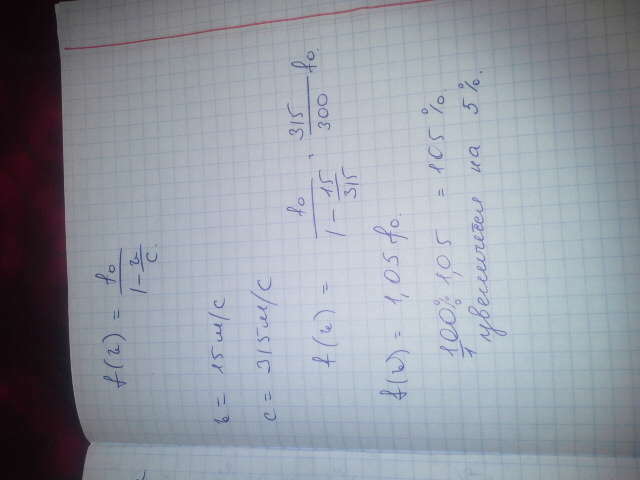 f(v) = f₀ / (1 - v/c)
v = 15 м/с
c = 315 м/с
f(v) = f₀ / (1 - 15/315) · 315/300 f₀.
f(v) = 1,05 f₀.
100%/1 · 1,05 = 105%.
увеличится на 5%.